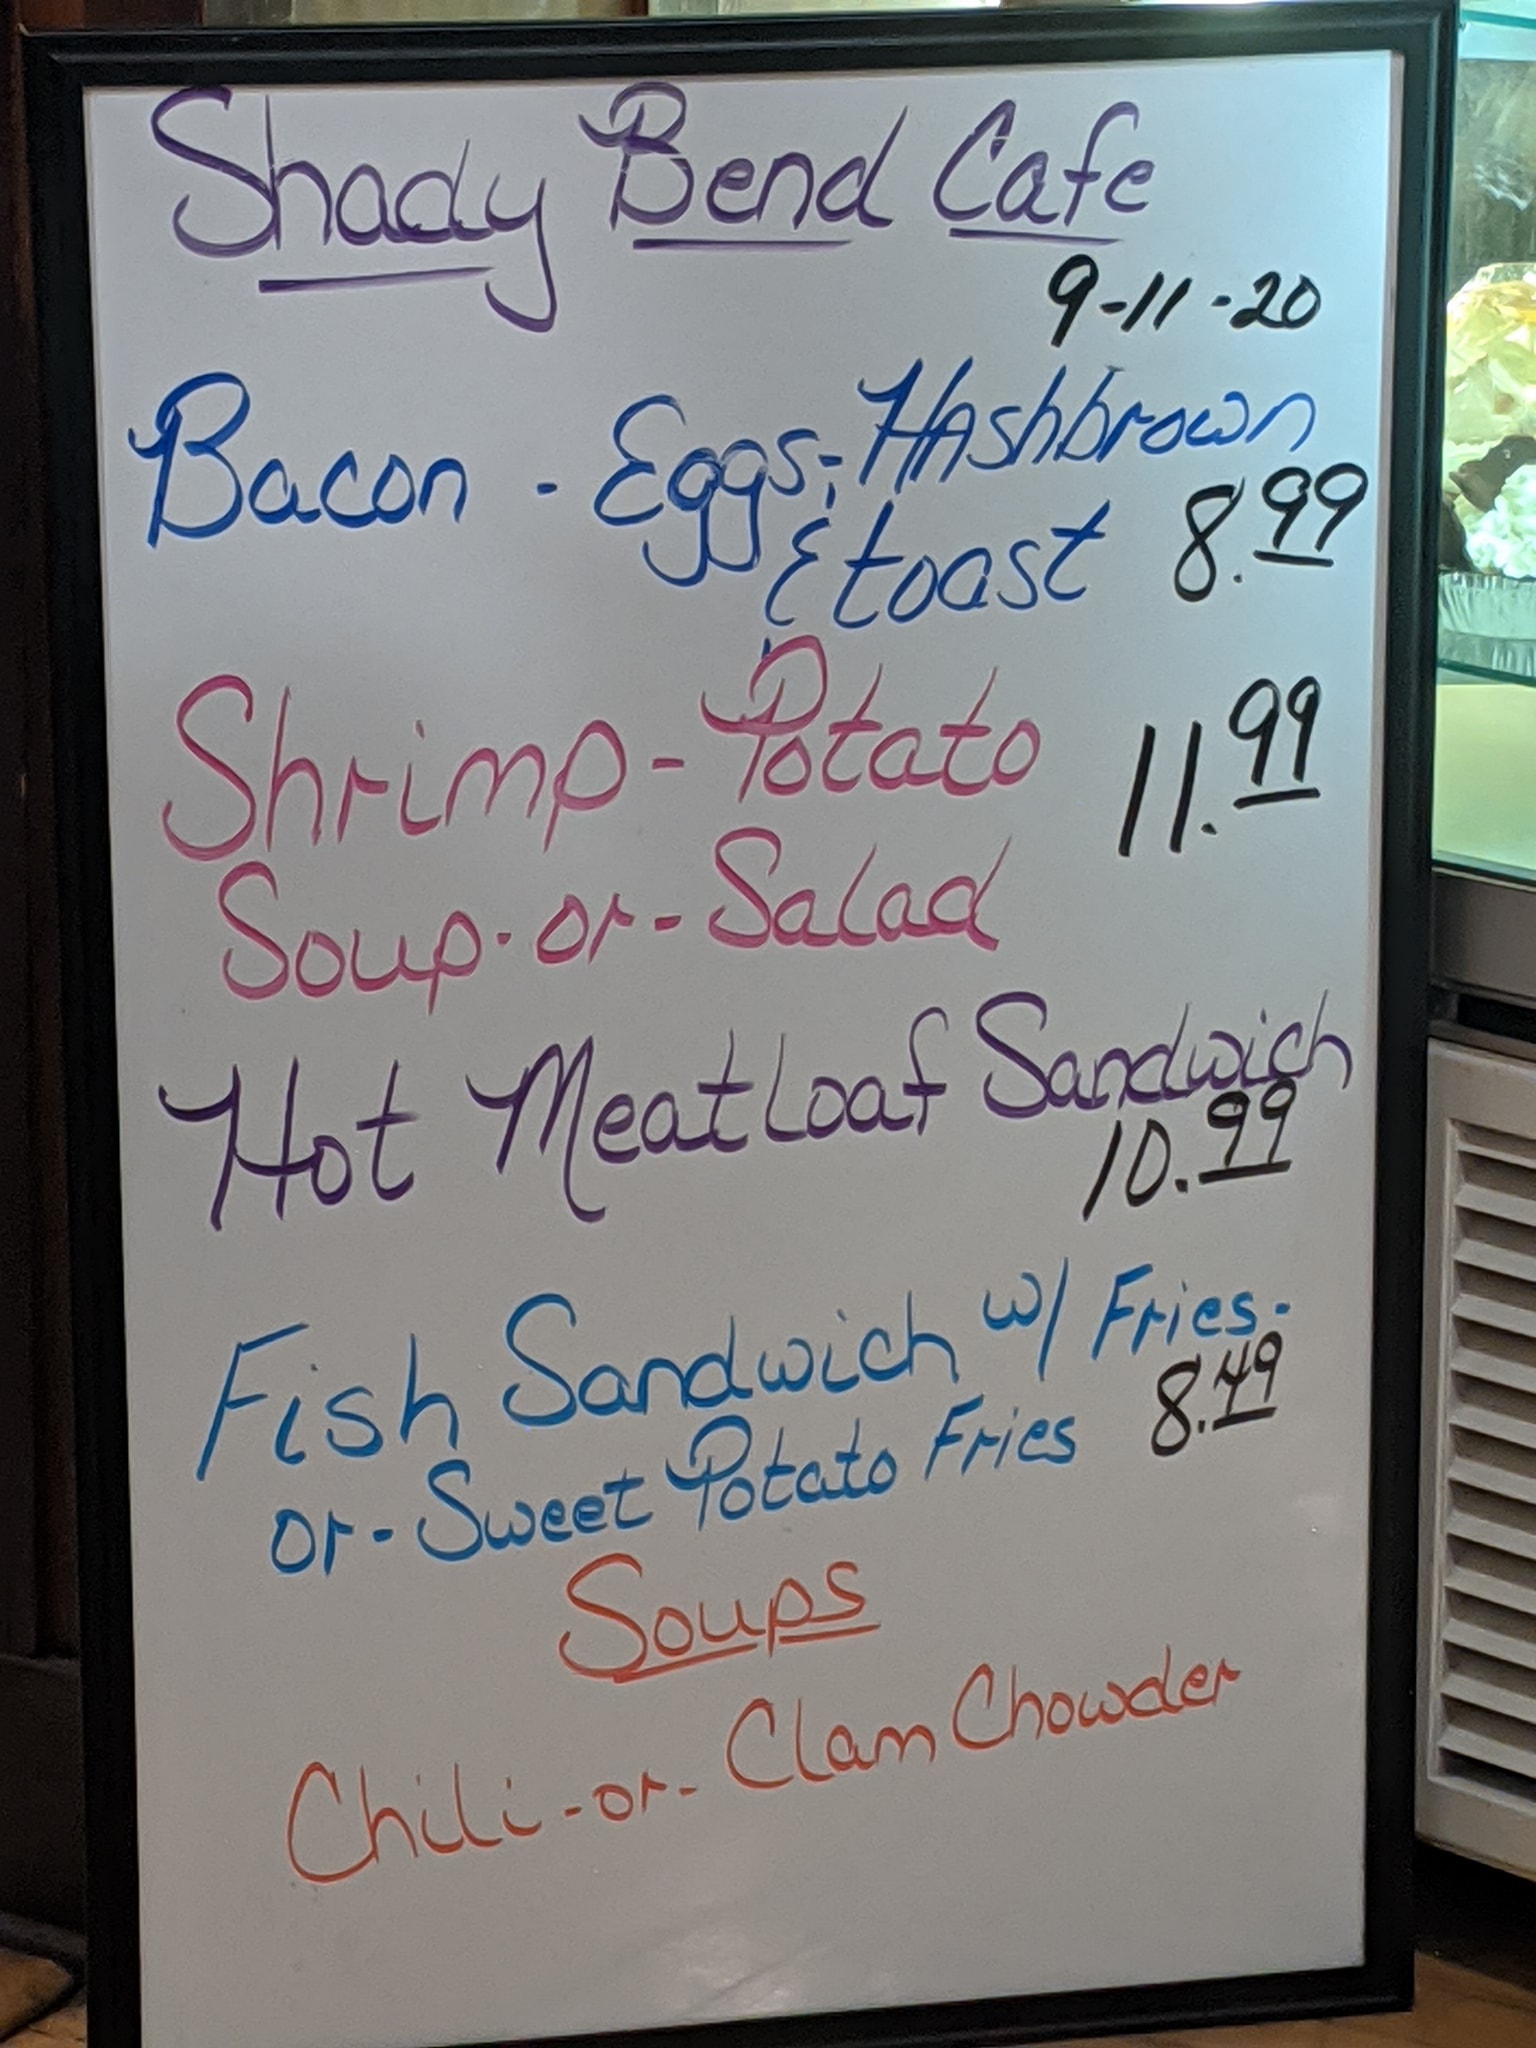 Shady Bend Cafe
9-11-20
Bacon - Eggs, HAshbrown
& toast 8.99
Shrimp - Potato 11.99
Soup-or-Salad
Hot Meatloaf Sandwich
10.99
Fish Sandwich w/ Fries-
or-Sweet Potato Fries 8.49
Soups
Chili-or-Clam Chowder